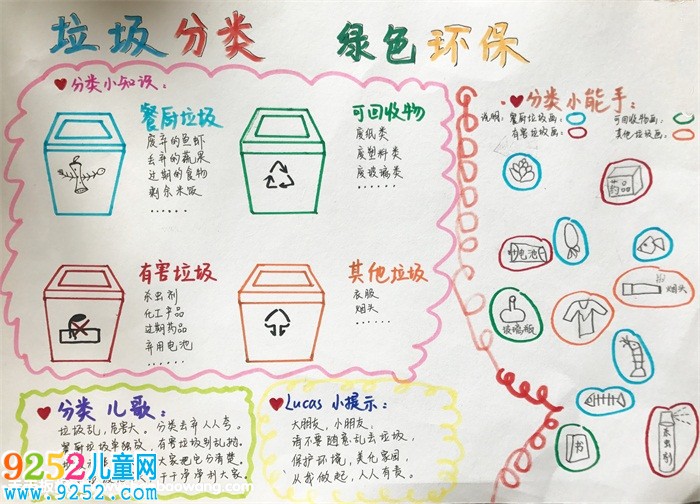 垃圾分类 绿色环保
分类小知识：
餐厨垃圾
废弃的鱼虾
丢弃的蔬果
过期的食物
剩余米饭
......
可回收物
废纸类
废塑料类
废玻璃类
......
有害垃圾
杀虫剂
化工产品
过期药品
弃用电池
......
其他垃圾
衣服
烟头
......
分类小能手：
说明：餐厨垃圾画：
可回收物画：
有害垃圾画：
其他垃圾画：
药
电池
烟头
玻璃瓶
书
杀虫剂
分类儿歌：
垃圾乱，危害大。分类丢弃人人夸。
餐厨垃圾单独放，有害垃圾别乱抛。
大家把它分清楚
干干净净利大家
Lucas 小提示：
大朋友，小朋友，
请不要随意乱丢垃圾，
保护环境，美化家园，
从我做起，人人有责。
9252儿童网
www.9252.com